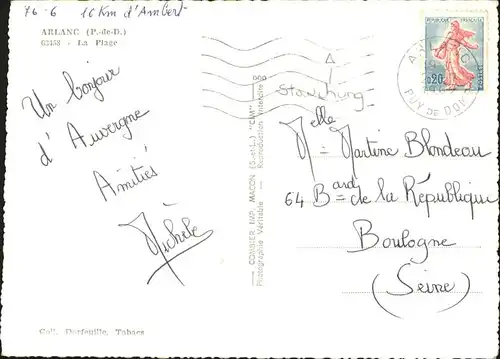 76-6 16 Km d'Ambert
ARLANC (P.-de-D.)
63158 - La Plage
Un bonjour
d'Auvergne
Amitiés
Michèle
Coll. Darfeuille, Tabacs
COMBIER IMP. MACON (S.-et-L.) "CIM"
Photographie Véritable - Reproduction Interdite
RÉPUBLIQUE FRANÇAISE
0,20
POSTES
ARLANC
PUY DE DOME
Melle = Martine Blondeau
64 Bard = de la République
Boulogne
(Seine)